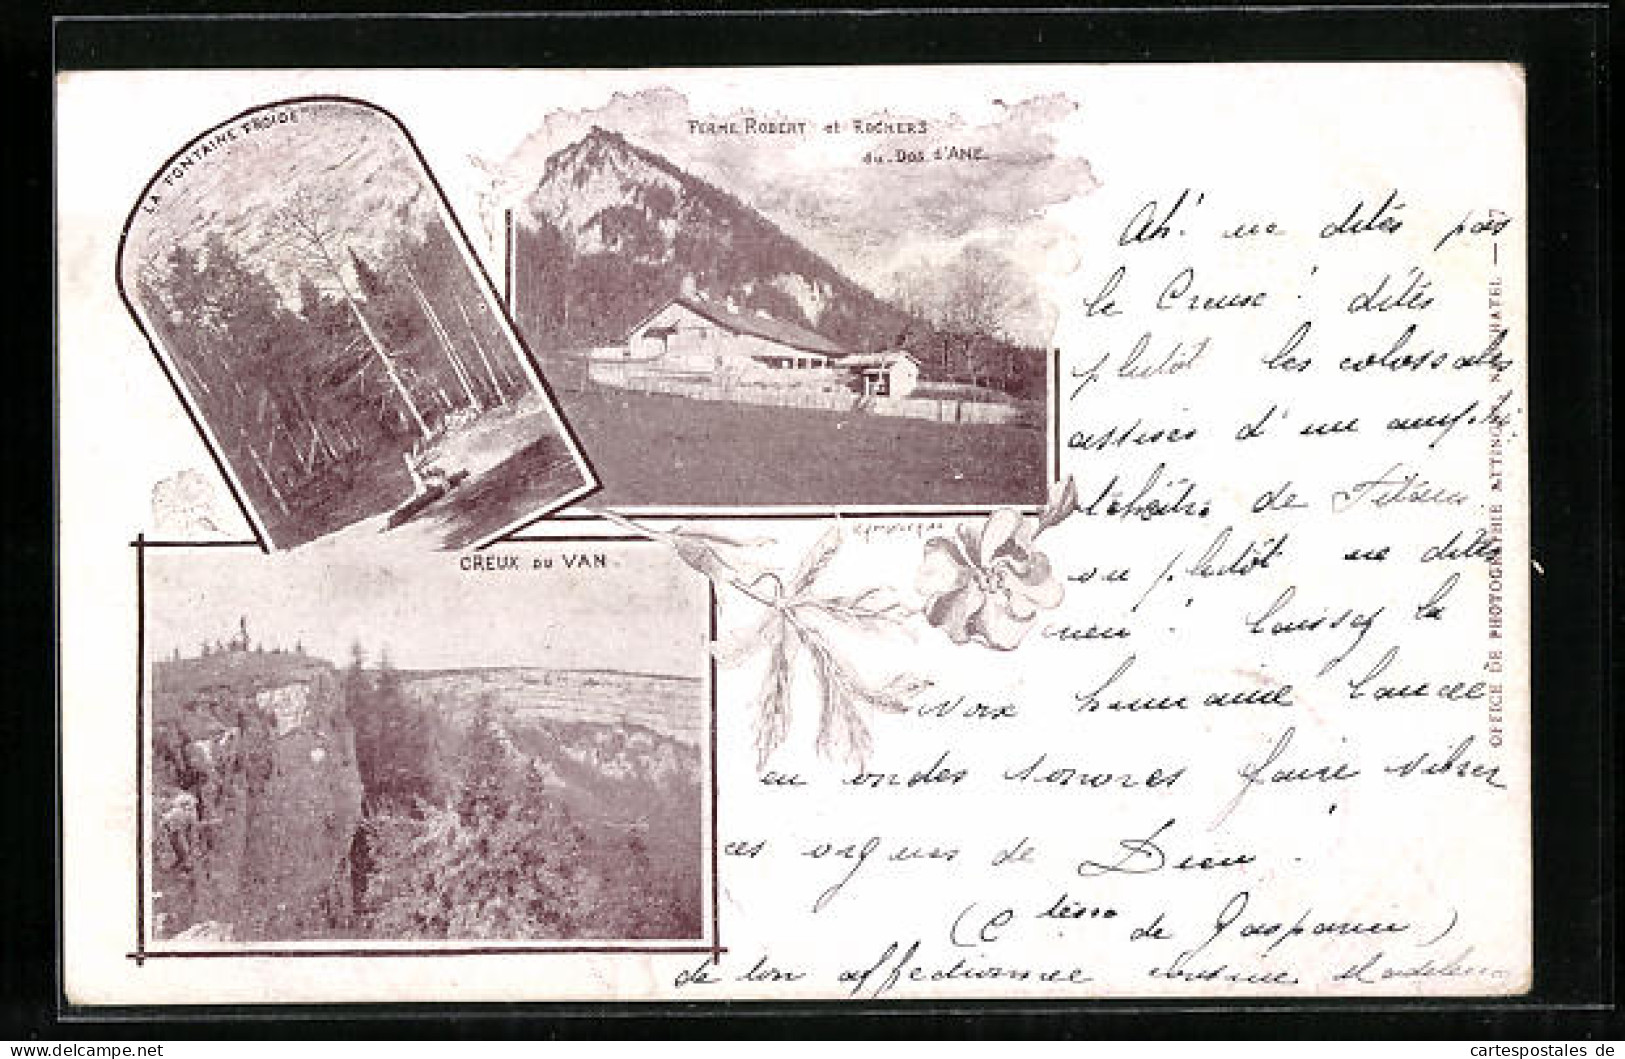 LA FONTAINE FROIDE
FERME ROBERT et ROCHERS
du DOS d'ANE.
CREUX DU VAN.
OFFICE DE PHOTOGRAPHIE ATTINGER, NEUCHATEL. — 7
Ah! ne dites pas
le Creux! dites
plutôt les colossales
assises d'un amphi
théâtre de Titans
ou plutôt ne dites
rien! laissez la
voix humaine lancée
en ondes sonores faire vibrer
ces orgues de Dieu.
(Ctesse de Gasparin)
de ton affectionnée cousine Madeleine
cartespostales de